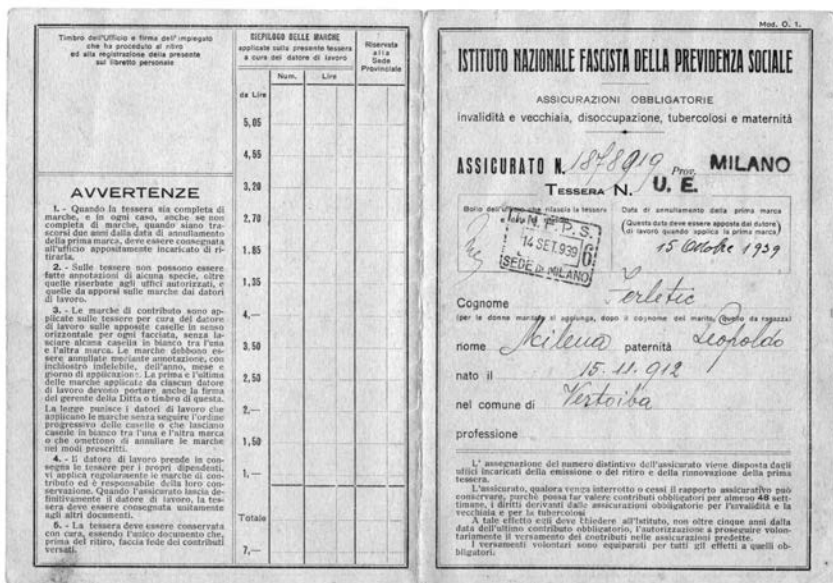 Timbro dell'Ufficio e firma dell'impiegato
che ha proceduto al ritiro
ed alla registrazione della presente
sul libretto personale
RIEPILOGO DELLE MARCHE
applicate sulla presente tessera
a cura del datore di lavoro
Riservata
alla
Sede
Provinciale
Num.
Lire
da Lire
5,05
4,55
3,20
2,70
1,85
1,35
4,—
3,50
2,50
2,—
1,50
1,—
Totale
7,—
AVVERTENZE
1. - Quando la tessera sia completa di
marche, e in ogni caso, anche se non
completa di marche, quando siano tra-
scorsi due anni dalla data di annullamento
della prima marca, deve essere consegnata
all'ufficio appositamente incaricato di ri-
tirarla.
2. - Sulle tessere non possono essere
fatte annotazioni di alcuna specie, oltre
quelle riserbate agli uffici autorizzati, e
quelle da apporsi sulle marche dai datori
di lavoro.
3. - Le marche di contributo sono ap-
plicate sulle tessere per cura del datore
di lavoro sulle apposite caselle in senso
orizzontale per ogni facciata, senza la-
sciare alcuna casella in bianco tra l'una
e l'altra marca. Le marche debbono es-
sere annullate mediante annotazione, con
inchiostro indelebile, dell'anno, mese e
giorno di applicazione. La prima e l'ultima
delle marche applicate da ciascun datore
di lavoro devono portare anche la firma
del gerente della Ditta o timbro di questa.
La legge punisce i datori di lavoro che
applicano le marche senza seguire l'ordine
progressivo delle caselle o che lasciano
caselle in bianco tra l'una e l'altra marca
o che omettono di annullare le marche
nei modi prescritti.
4. - Il datore di lavoro prende in con-
segna le tessere per i propri dipendenti,
vi applica regolarmente le marche di con-
tributo ed è responsabile della loro con-
servazione. Quando l'assicurato lascia de-
finitivamente il datore di lavoro, la tes-
sera deve essere consegnata unitamente
agli altri documenti.
5. - La tessera deve essere conservata
con cura, essendo l'unico documento che,
prima del ritiro, faccia fede dei contributi
versati.
Mod. O. 1.
ISTITUTO NAZIONALE FASCISTA DELLA PREVIDENZA SOCIALE
ASSICURAZIONI OBBLIGATORIE
invalidità e vecchiaia, disoccupazione, tubercolosi e maternità
ASSICURATO N. 1878919 Prov. MILANO
TESSERA N. U. E.
Bollo dell'ufficio che rilascia la tessera
I.N.F.P.S.
14 SET. 939
6
SEDE DI MILANO
Data di annullamento della prima marca
(Questa data deve essere apposta dal datore
di lavoro quando applica la prima marca)
15 Ottobre 1939
Cognome Ferletic
(per le donne maritate si aggiunga, dopo il cognome del marito, quello da ragazza)
nome Milena paternità Leopoldo
nato il 15.11.912
nel comune di Vertoiba
professione
L'assegnazione del numero distintivo dell'assicurato viene disposta dagli
uffici incaricati della emissione o del ritiro e della rinnovazione della prima
tessera.
L'assicurato, qualora venga interrotto o cessi il rapporto assicurativo può
conservare, purchè possa far valere contributi obbligatori per almeno 48 setti-
mane, i diritti derivanti dalle assicurazioni obbligatorie per l'invalidità e la
vecchiaia e per la tubercolosi
A tale effetto egli deve chiedere all'Istituto, non oltre cinque anni dalla
data dell'ultimo contributo obbligatorio, l'autorizzazione a proseguire volon-
tariamente il versamento dei contributi nelle assicurazioni predette.
I versamenti volontari sono equiparati per tutti gli effetti a quelli ob-
bligatori.